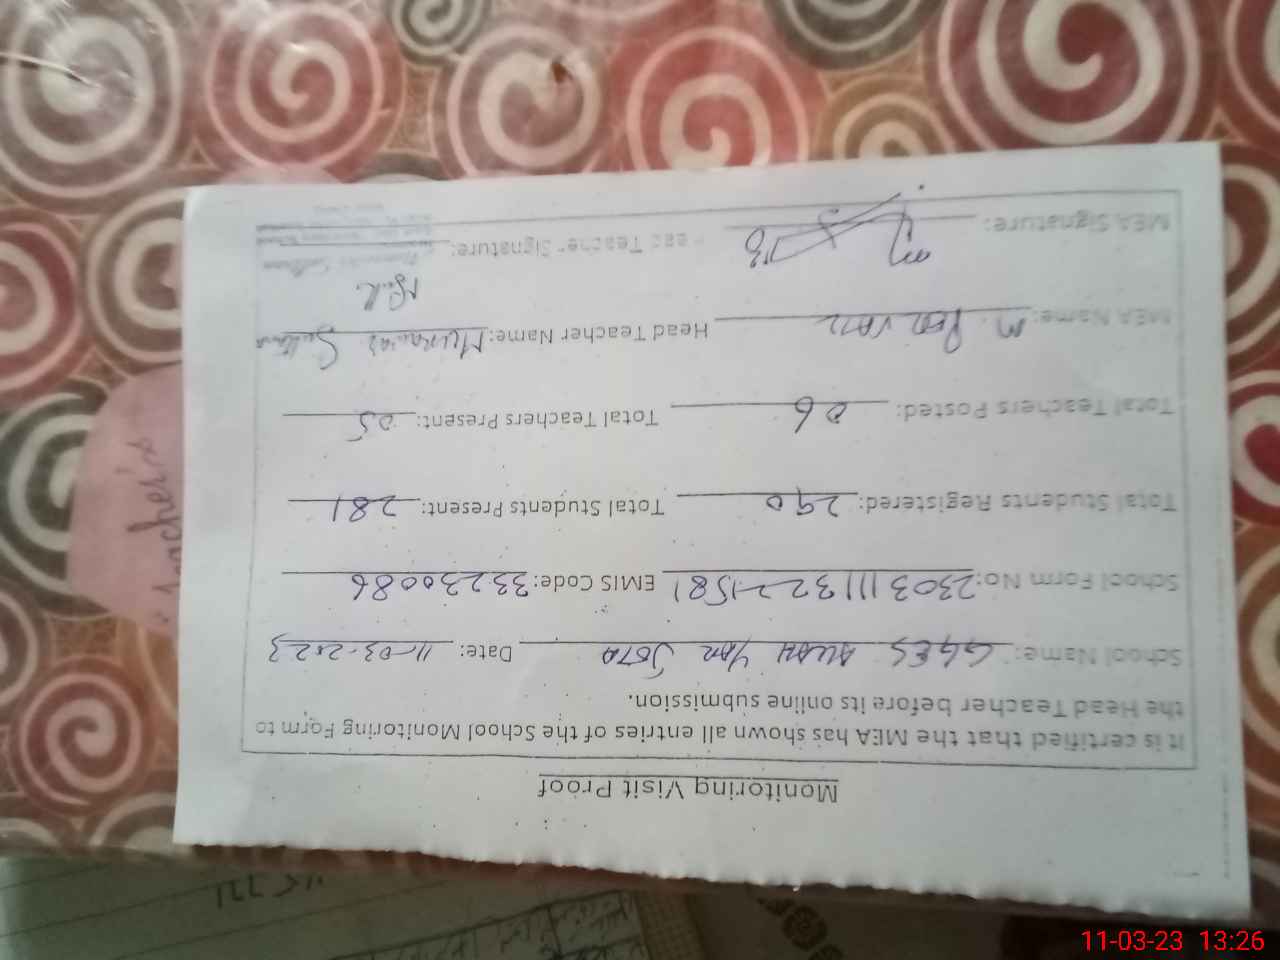 Monitoring Visit Proof
It is certified that the MEA has shown all entries of the School Monitoring Form to
the Head Teacher before its online submission.
School Name: GGES ALLAH YAR JOTA Date: 11-03-2023
School Form No: 2303111322-1581 EMIS Code: 33230086
Total Students Registered: 290 Total Students Present: 281
Total Teachers Posted: 06 Total Teachers Present: 05
MEA Name: M Head Teacher Name: Munawar Sultana
MEA Signature: Head Teacher Signature:
11-03-23 13:26